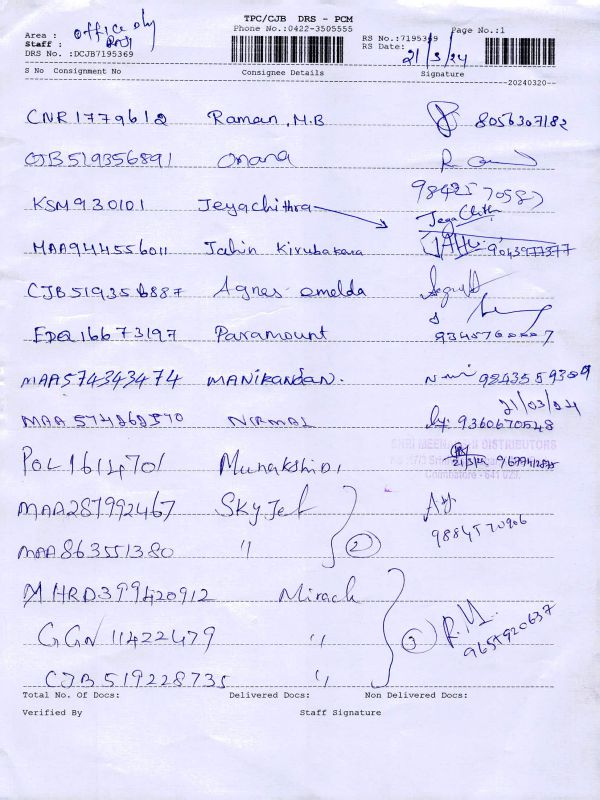 TPC/CJB DRS - PCM
Phone No.:0422-3505555
Page No.:1
Area : office dly
Staff :
RS No.:7195369
RS Date: 21/3/24
DRS No. :DCJB7195369
S No Consignment No Consignee Details Signature
20240320
CNR1779612 Raman.M.B 8056307182
CJB519356891 R
KSM930101 Jeyachithra 9842570587
Jeya Chith
MAA944556011 Jahin Kirubakara 9043977377
CJB519356887 Agnes emelda
EDQ16673197 Paramount
MAA574343474 MANIKANDAN. 9843559309
21/03/24
NIRMAL 9360670548
SHRI DISTRIBUTORS
21/3/24
POL1614701 Coimbatore - 641
MAA287992467 SkyJet
MAA863551380 " 2 9884570906
MHRD399420912 Mirack
GGN11422479 " 3 9655920637
CJB519228735 "
Total No. Of Docs: Delivered Docs: Non Delivered Docs:
Verified By Staff Signature